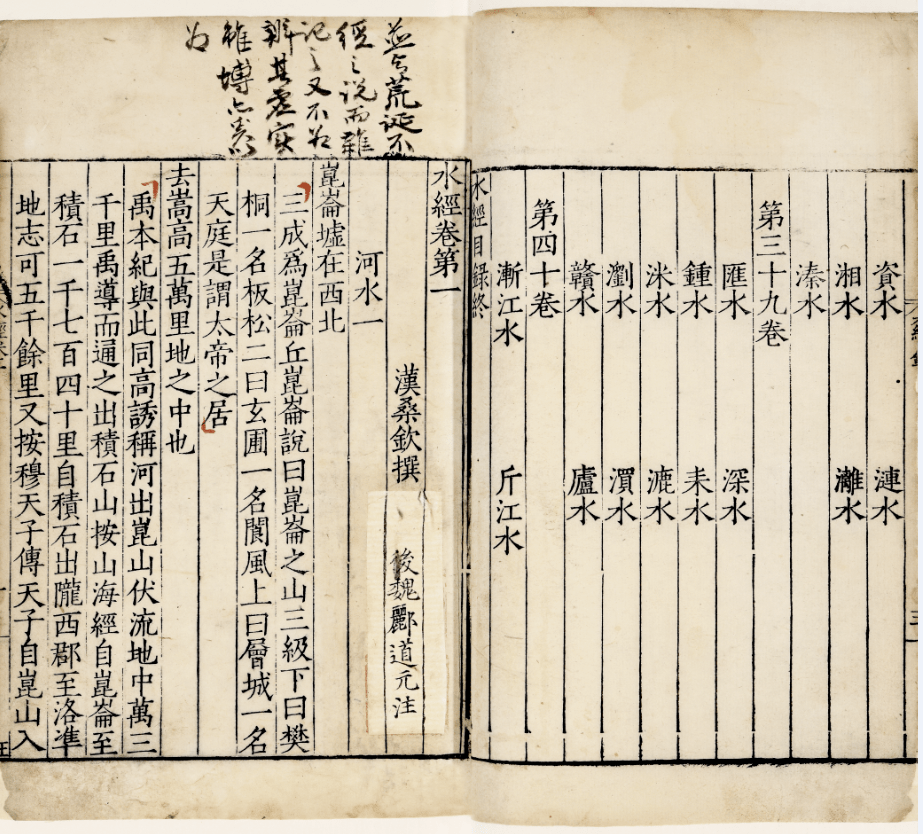 資水 漣水
湘水 灕水
溱水
第三十九卷
匯水 深水
鍾水 耒水
洣水 漉水
瀏水
贛水 廬水
第四十卷
漸江水 斤江水
水經目録終
荒誕不
經之說而雜
記之又不
辨其虛實
雖博亦奚
為
水經卷第一
漢桑欽撰 後魏酈道元注
河水一
崑崙墟在西北
三成為崑崙丘崑崙說曰崑崙之山三級下曰樊
桐一名板松二曰玄圃一名閬風上曰層城一名
天庭是謂太帝之居
去嵩高五萬里地之中也
禹本紀與此同高誘稱河出崑山伏流地中萬三
千里禹導而通之出積石山按山海經自崑崙至
積石一千七百四十里自積石出隴西郡至洛準
地志可五千餘里又按穆天子傳天子自崑山入